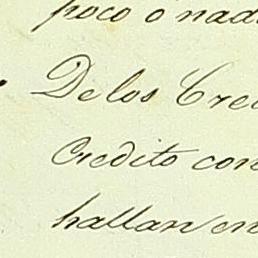 poco ó nad
De los Cre
Credito con
hallan en